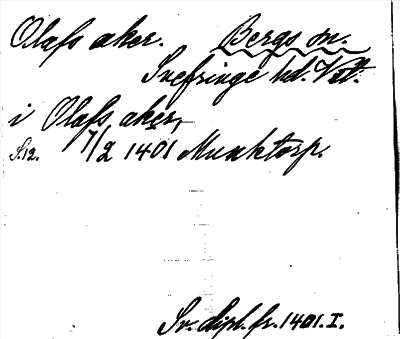 Olafs aker. Bergs sn.
Snefringe hd. Vstl.
i Olafs aker,
S.12. 7/2 1401 Munktorp.
Sv. dipl. fr. 1401. I.